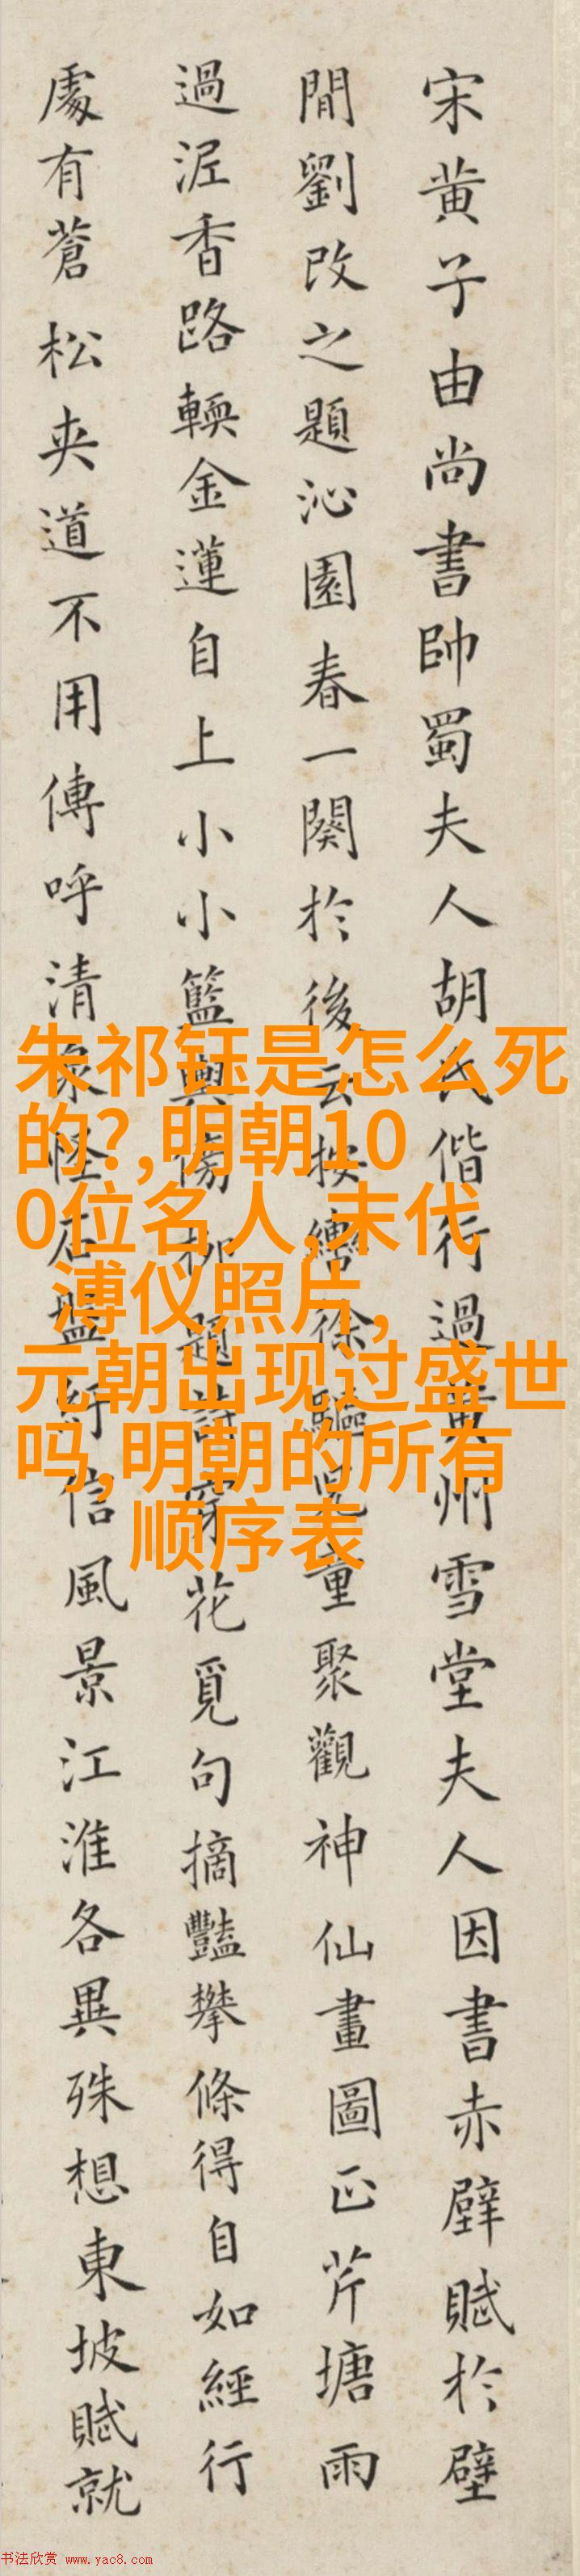 宋黄子由尚書帥蜀夫人胡氏偕行過黄州雪堂夫人因書赤壁賦於壁
間劉改之題沁園春一闋於後云按轡徐驅兒童聚觀神仙畫圖正芹塘雨
過泥香路輭金蓮自上小小籃輿傍柳題詩穿花覓句摘豔攀條得自如經行
處有蒼松夾道不用傳呼清泉怪石盤紆信風景江淮各異殊想東坡賦就
朱祁钰是怎么死
的?,明朝10
0位名人,末代
溥仪照片,
元朝出现过盛世
吗,明朝的所有
顺序表
书法欣赏 www.yac8.com